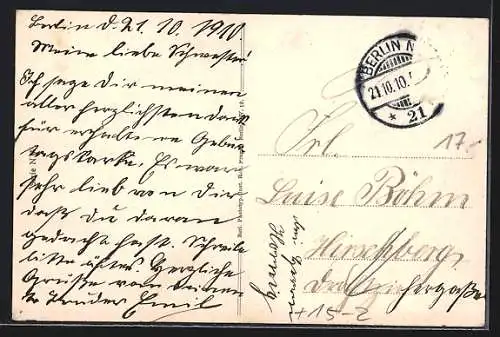 Berlin d. 21.10.1910.
Meine liebe Schwester!
Ich sage Dir meinen
allerherzlichsten Dank
für erhaltene Gebur-
tagskarte. Es war
sehr lieb von Dir
daß Du daran
gedacht hast. Schreibe
bitte öfters. Herzliche
Grüße von Deinem
Bruder Emil
BERLIN N.
21.10.10.
* 21
17.-
Frl.
Luise Böhm
Hirschberg
+15-2